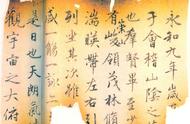 永和九年歲
于會稽山陰之
也羣賢畢至
有崇山峻領茂林脩
湍暎帶左右引
列坐其次雖
盛一觴一詠
是日也天朗氣
觀宇宙之大俯